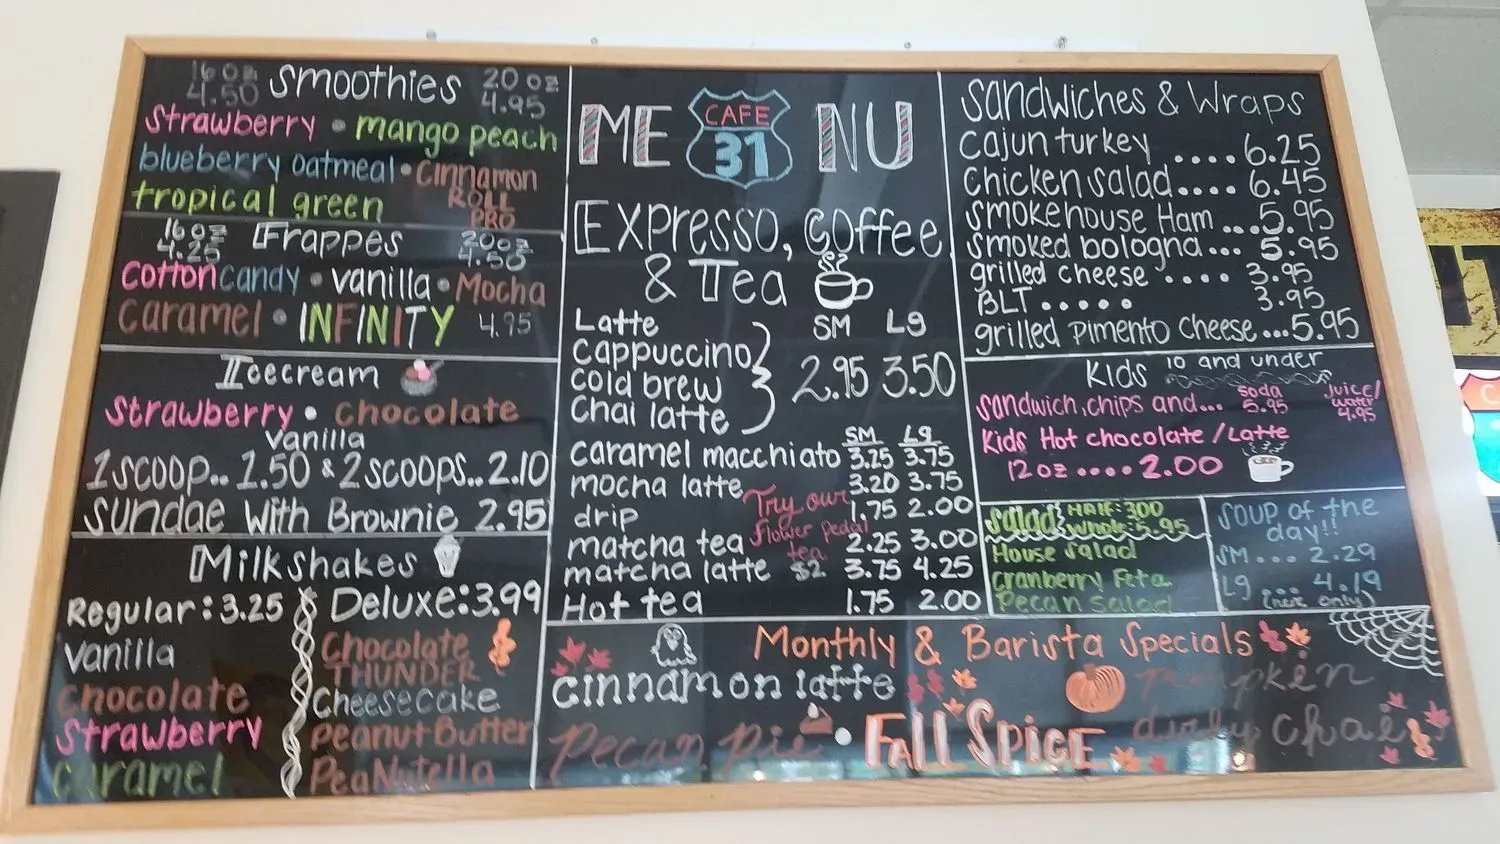 16 oz Smoothies 20 oz
4.50 4.95
Strawberry • mango peach
blueberry oatmeal • Cinnamon
ROLL
tropical green PRO
16oz Frappes 20oz
4.25 4.50
Cotton candy • vanilla • Mocha
Caramel • INFINITY 4.95
Icecream
Strawberry • chocolate
vanilla
1 scoop.. 1.50 & 2 scoops.. 2.10
Sundae with Brownie 2.95
Milkshakes
Regular: 3.25 Deluxe: 3.99
vanilla Chocolate
THUNDER
chocolate Cheesecake
Strawberry Peanut Butter
caramel PeaNutella
ME CAFE 31 NU
Expresso, Coffee
& Tea
SM Lg
Latte
Cappuccino
cold brew 2.95 3.50
Chai latte
SM Lg
caramel macchiato 3.25 3.75
mocha latte 3.20 3.75
drip 1.75 2.00
Try our
flower pedal
tea
$2
matcha tea 2.25 3.00
matcha latte 3.75 4.25
Hot tea 1.75 2.00
Sandwiches & Wraps
cajun turkey .... 6.25
chicken salad .... 6.45
smokehouse Ham ... 5.95
smoked bologna ... 5.95
grilled cheese .... 3.95
BLT ..... 3.95
grilled Pimento Cheese ... 5.95
Kids 10 and under
sandwich, chips and... soda 5.95 juice/water 4.95
Kids Hot chocolate / Latte
12oz .... 2.00
salad Half: 300
Whole: 5.95
House salad
cranberry Feta
Pecan salad
SOUP of the
day!!
SM ... 2.29
Lg ... 4.19
(here only)
Monthly & Barista Specials
cinnamon latte pumpkin
pecan pie • Fall Spice dirty chai